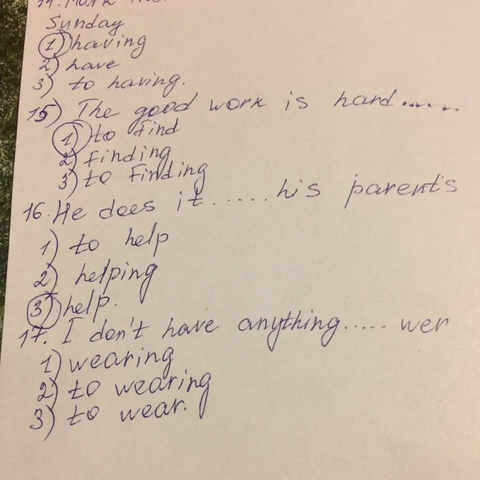 14. Mark
Sunday
1) having
2) have
3) to having.
15) The good work is hard......
1) to find
2) finding
3) to finding
16. He does it ..... his parents
1) to help
2) helping
3) help.
17. I don't have anything..... wer
1) wearing
2) to wearing
3) to wear.